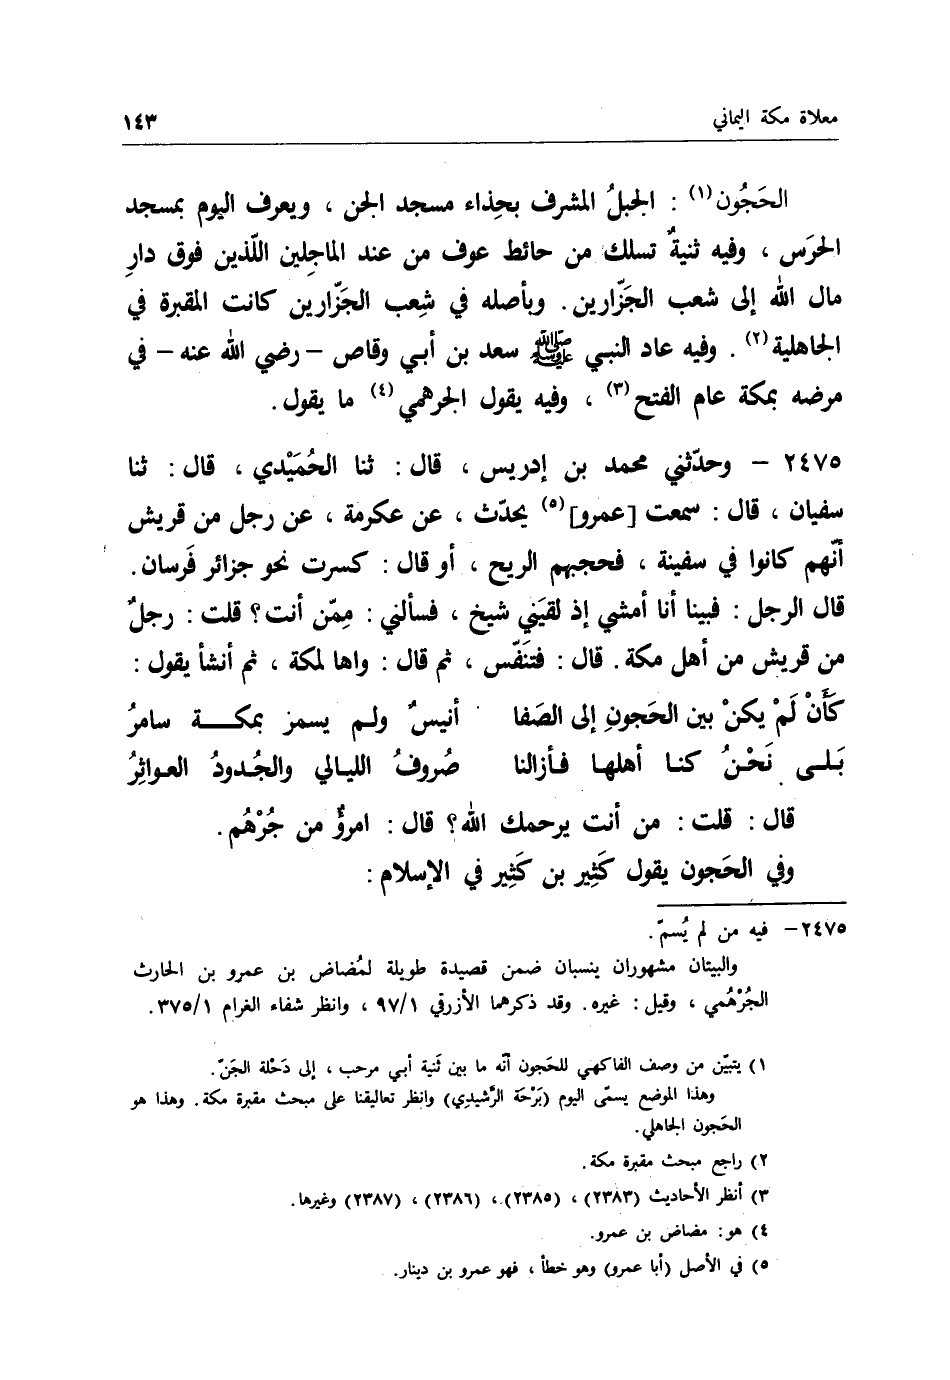 معلاة مكة اليماني ١٤٣
الحَجُون(١) : الجبلُ المشرف بحِذاء مسجد الجن ، ويعرف اليوم بمسجد
الحرَس ، وفيه ثنيةٌ تسلك من حائط عوف من عند الماجلين اللّذين فوق دارِ
مال الله إلى شعب الجَزّارين. وبأصله في شِعب الجَزّارين كانت المقبرة في
الجاهلية(٢) . وفيه عاد النبي ﷺ سعد بن أبي وقاص – رضي الله عنه – في
مرضه بمكة عام الفتح(٣) ، وفيه يقول الجرهمي(٤) ما يقول.
٢٤٧٥ – وحدّثني محمد بن إدريس ، قال : ثنا الحُمَيْدي ، قال : ثنا
سفيان ، قال : سمعت [عمرو](٥) يحدّث ، عن عكرمة ، عن رجل من قريش
أنّهم كانوا في سفينة ، فحجبهم الريح ، أو قال : كسرت نحو جزائر فَرسان.
قال الرجل : فبينا أنا أمشي إذ لقيَني شيخ ، فسألني : مِمّن أنت؟ قلت : رجلٌ
من قريش من أهل مكة. قال : فتنَفّس ، ثم قال : واها لمكة ، ثم أنشأ يقول :
كَأَنْ لَمْ يكنْ بين الحَجونِ إلى الصَفا أنيسٌ ولم يسمز بمكة سامرُ
بَلى نَحْنُ كنا أهلها فأزالنا صُروفُ الليالي والجُدودُ العواثِرُ
قال : قلت : من أنت يرحمك الله؟ قال : امرؤٌ من جُرْهُم.
وفي الحَجون يقول كَثِير بن كَثِير في الإسلام :
٢٤٧٥– فيه من لم يُسمّ.
والبيتان مشهوران ينسبان ضمن قصيدة طويلة لمُضاض بن عمرو بن الحارث
الجُرْهُمي ، وقيل : غيره. وقد ذكرهما الأزرقي ٩٧/١ ، وانظر شفاء الغرام ٣٧٥/١.
١) يتبيّن من وصف الفاكهي للحَجون أنّه ما بين ثَنية أبي مرحب ، إلى دَحْلة الجَنّ.
وهذا الموضع يسمّى اليوم (بَرْحَة الرَّشيدِي) وانظر تعاليقنا على مبحث مقبرة مكة. وهذا هو
الحَجون الجاهلي.
٢) راجع مبحث مقبرة مكة.
٣) أنظر الأحاديث (٢٣٨٣) ، (٢٣٨٥). ، (٢٣٨٦) ، (٢٣٨٧) وغيرها.
٤) هو: مضاض بن عمرو.
٥) في الأصل (أبا عمرو) وهو خطأ ، فهو عمرو بن دينار.